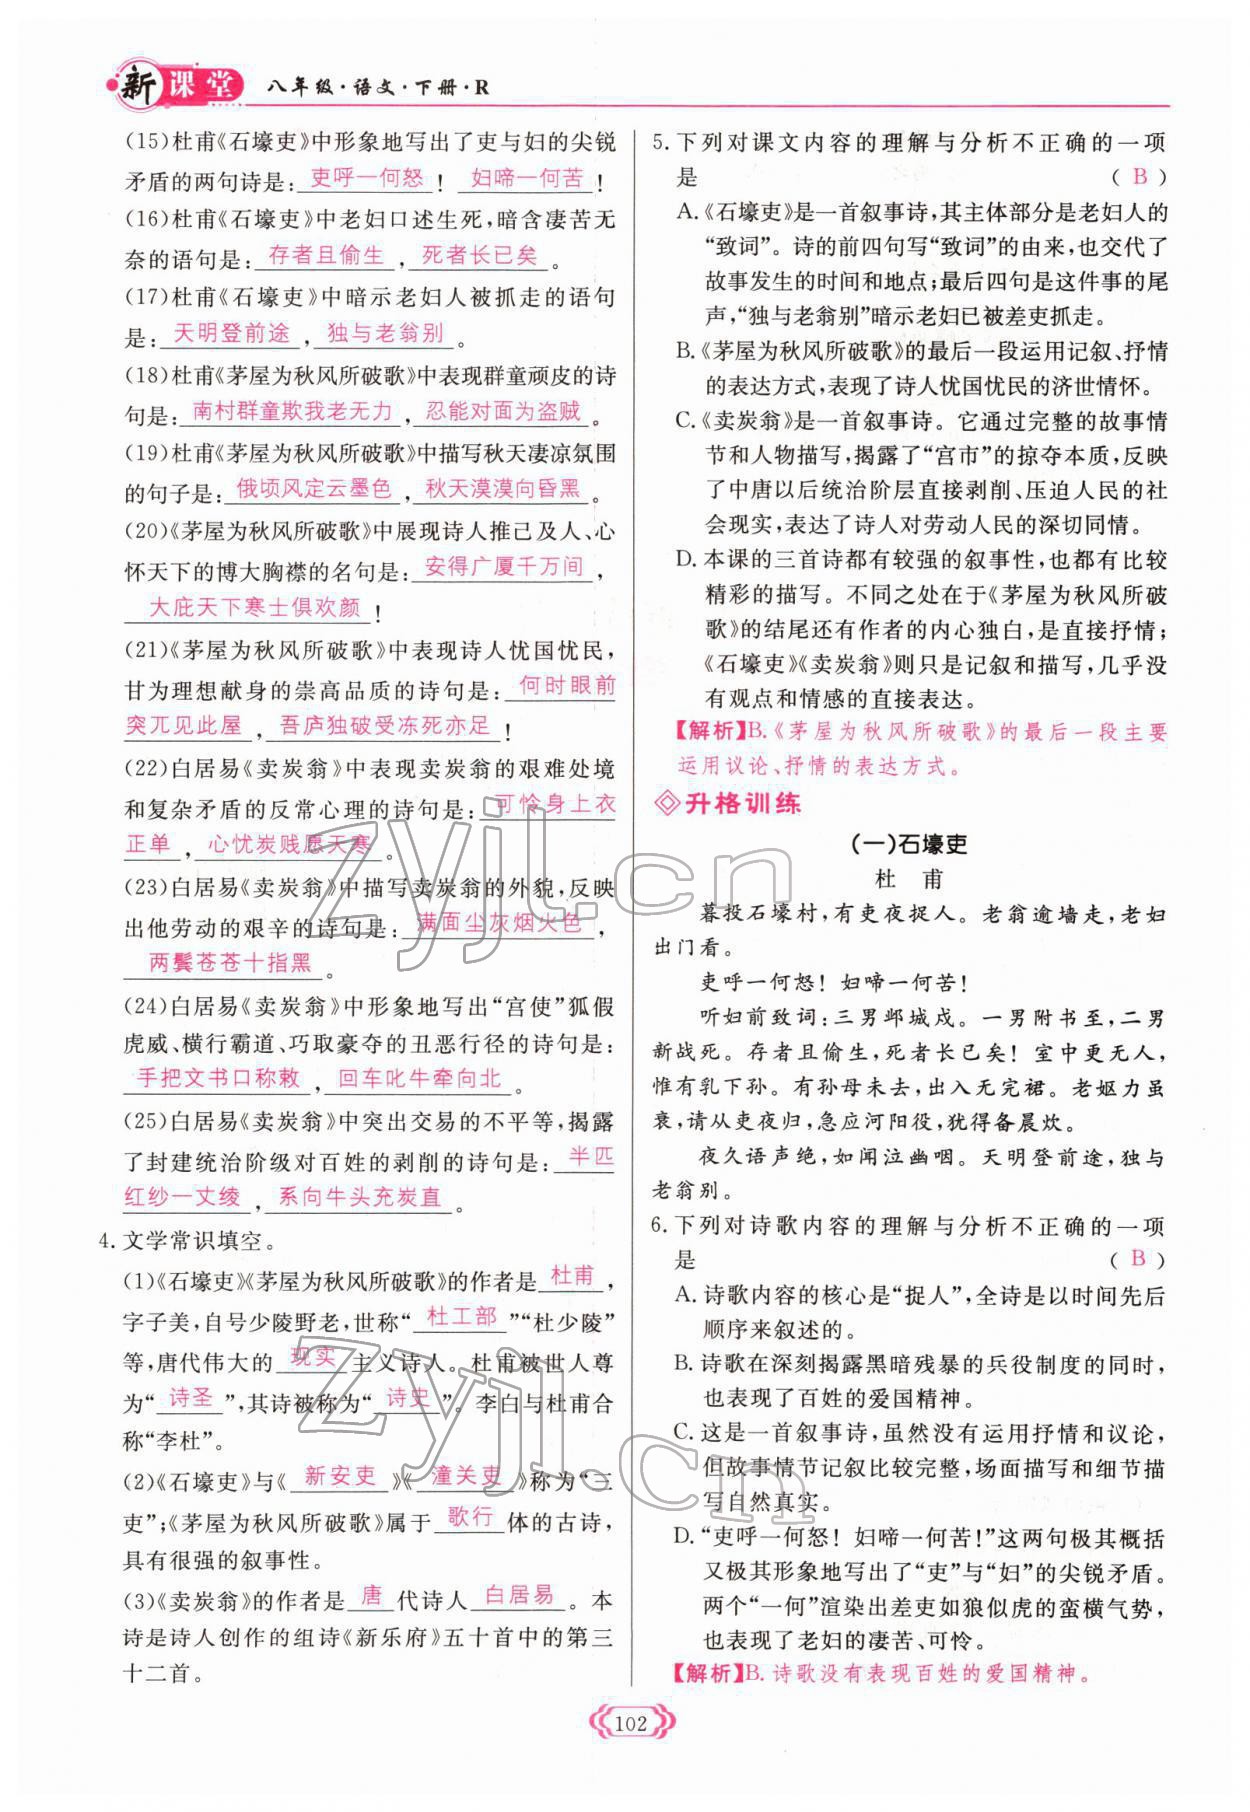 新课堂 八年级·语文·下册·R
(15)杜甫《石壕吏》中形象地写出了吏与妇的尖锐
矛盾的两句诗是:吏呼一何怒!妇啼一何苦!
(16)杜甫《石壕吏》中老妇口述生死,暗含凄苦无
奈的语句是:存者且偷生,死者长已矣。
(17)杜甫《石壕吏》中暗示老妇人被抓走的语句
是:天明登前途,独与老翁别。
(18)杜甫《茅屋为秋风所破歌》中表现群童顽皮的诗
句是:南村群童欺我老无力,忍能对面为盗贼。
(19)杜甫《茅屋为秋风所破歌》中描写秋天凄凉氛围
的句子是:俄顷风定云墨色,秋天漠漠向昏黑。
(20)《茅屋为秋风所破歌》中展现诗人推己及人、心
怀天下的博大胸襟的名句是:安得广厦千万间,
大庇天下寒士俱欢颜!
(21)《茅屋为秋风所破歌》中表现诗人忧国忧民,
甘为理想献身的崇高品质的诗句是:何时眼前
突兀见此屋,吾庐独破受冻死亦足!
(22)白居易《卖炭翁》中表现卖炭翁的艰难处境
和复杂矛盾的反常心理的诗句是:可怜身上衣
正单,心忧炭贱愿天寒。
(23)白居易《卖炭翁》中描写卖炭翁的外貌,反映
出他劳动的艰辛的诗句是:满面尘灰烟火色,
两鬓苍苍十指黑。
(24)白居易《卖炭翁》中形象地写出“宫使”狐假
虎威、横行霸道、巧取豪夺的丑恶行径的诗句是:
手把文书口称敕,回车叱牛牵向北。
(25)白居易《卖炭翁》中突出交易的不平等,揭露
了封建统治阶级对百姓的剥削的诗句是:半匹
红纱一丈绫,系向牛头充炭直。
4. 文学常识填空。
(1)《石壕吏》《茅屋为秋风所破歌》的作者是杜甫,
字子美,自号少陵野老,世称“杜工部”“杜少陵”
等,唐代伟大的现实主义诗人。杜甫被世人尊
为“诗圣”,其诗被称为“诗史”。李白与杜甫合
称“李杜”。
(2)《石壕吏》与《新安吏》《潼关吏》称为“三
吏”;《茅屋为秋风所破歌》属于歌行体的古诗,
具有很强的叙事性。
(3)《卖炭翁》的作者是唐代诗人白居易。本
诗是诗人创作的组诗《新乐府》五十首中的第三
十二首。
5. 下列对课文内容的理解与分析不正确的一项
是 (B)
A.《石壕吏》是一首叙事诗,其主体部分是老妇人的
“致词”。诗的前四句写“致词”的由来,也交代了
故事发生的时间和地点;最后四句是这件事的尾
声,“独与老翁别”暗示老妇已被差吏抓走。
B.《茅屋为秋风所破歌》的最后一段运用记叙、抒情
的表达方式,表现了诗人忧国忧民的济世情怀。
C.《卖炭翁》是一首叙事诗。它通过完整的故事情
节和人物描写,揭露了“宫市”的掠夺本质,反映
了中唐以后统治阶层直接剥削、压迫人民的社
会现实,表达了诗人对劳动人民的深切同情。
D. 本课的三首诗都有较强的叙事性,也都有比较
精彩的描写。不同之处在于《茅屋为秋风所破
歌》的结尾还有作者的内心独白,是直接抒情;
《石壕吏》《卖炭翁》则只是记叙和描写,几乎没
有观点和情感的直接表达。
【解析】B.《茅屋为秋风所破歌》的最后一段主要
运用议论、抒情的表达方式。
升格训练
(一)石壕吏
杜 甫
暮投石壕村,有吏夜捉人。老翁逾墙走,老妇
出门看。
吏呼一何怒!妇啼一何苦!
听妇前致词:三男邺城戍。一男附书至,二男
新战死。存者且偷生,死者长已矣!室中更无人,
惟有乳下孙。有孙母未去,出入无完裙。老妪力虽
衰,请从吏夜归,急应河阳役,犹得备晨炊。
夜久语声绝,如闻泣幽咽。天明登前途,独与
老翁别。
6. 下列对诗歌内容的理解与分析不正确的一项
是 (B)
A. 诗歌内容的核心是“捉人”,全诗是以时间先后
顺序来叙述的。
B. 诗歌在深刻揭露黑暗残暴的兵役制度的同时,
也表现了百姓的爱国精神。
C. 这是一首叙事诗,虽然没有运用抒情和议论,
但故事情节记叙比较完整,场面描写和细节描
写自然真实。
D. “吏呼一何怒!妇啼一何苦!”这两句极其概括
又极其形象地写出了“吏”与“妇”的尖锐矛盾。
两个“一何”渲染出差吏如狼似虎的蛮横气势,
也表现了老妇的凄苦、可怜。
【解析】B. 诗歌没有表现百姓的爱国精神。
102
zyjl.cn
zyjl.cn